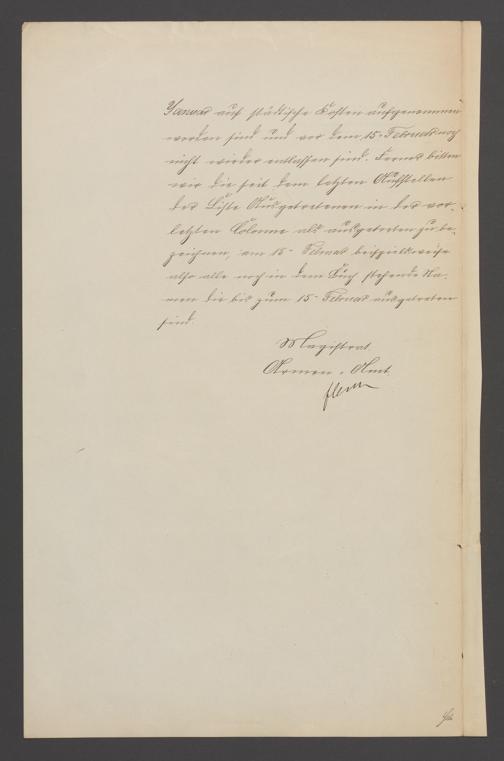 Januar auf städtische Kosten aufgenommen
worden sind und vor dem 15. Februar noch
nicht wieder entlassen sind. Ferner bitten
wir die seit dem letzten Aufstellen
der Liste Ausgetretenen in der vor-
letzten Colonne als ausgetreten zu be-
zeichnen, am 15. Februar beispielsweise
also alle noch in dem Buch stehende Na-
men die bis zum 15. Februar ausgetreten
sind.
Magistrat
Armen-Amt